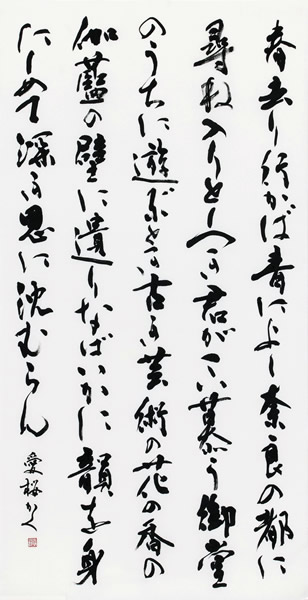 春去り行かば青によし奈良の都に
尋ね入り君がこい慕う御堂
のうちに遊ぶとき古き芸術の花の香の
伽藍の壁に遺りなばいかに韻を身
にしめて深き思に沈むらん
愛桜かく